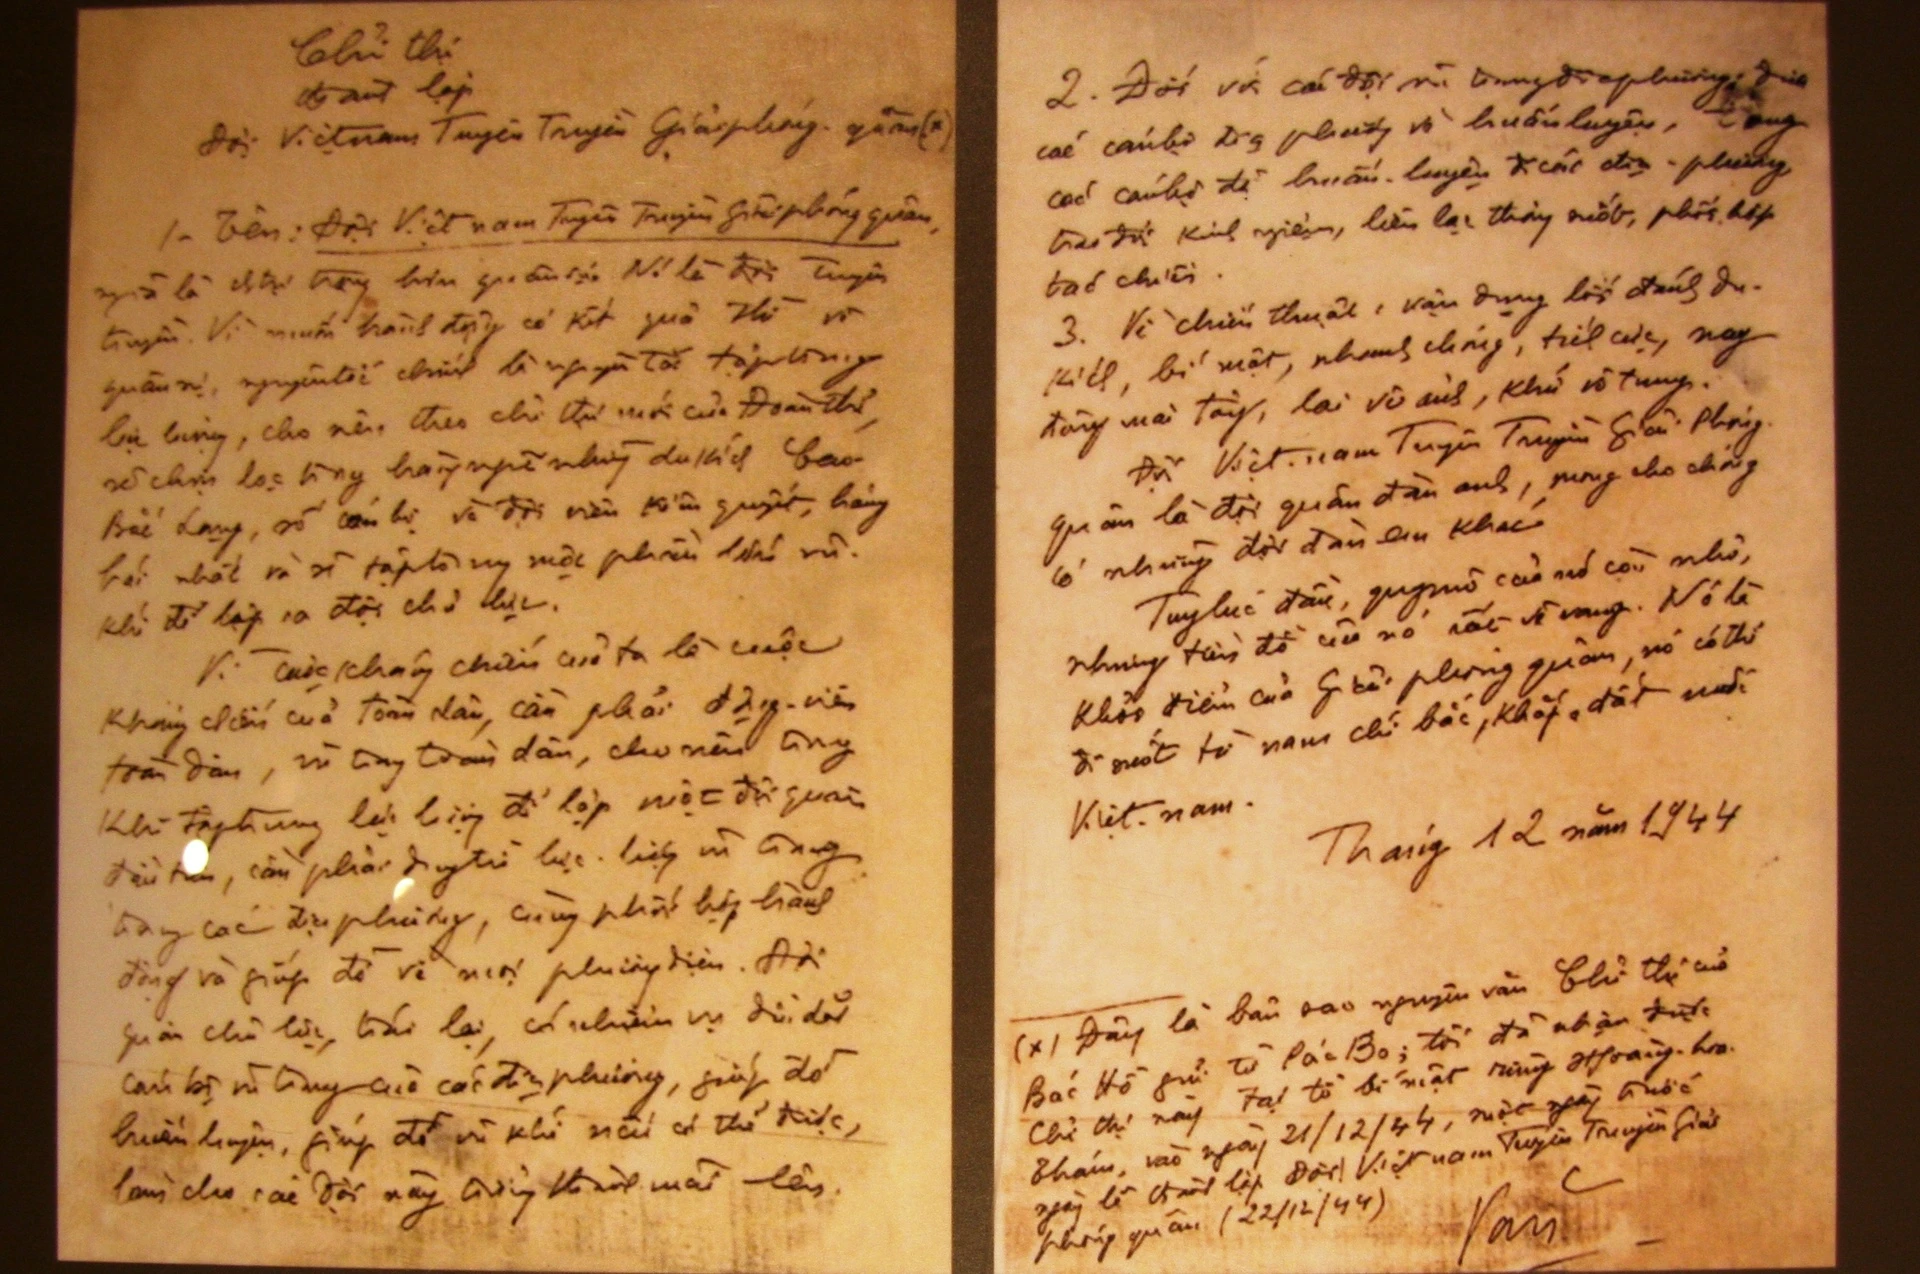 Chỉ thị
thành lập
Đội Việtnam Tuyên Truyền Giảiphóng-quân (x)
1- Tên: Đội Việt nam Tuyên Truyền Giải phóng quân,
nghĩa là chính trị trọng hơn quân sự. Nó là đội tuyên
truyền. Vì muốn hành động có kết quả thì về
quân sự, nguyêntắc chính là nguyên tắc tậptrung
lực lượng, cho nên, theo chỉ thị mới của Đoàn thể,
sẽ chọn lọc trong hàng ngũ những du kích Cao-
Bắc Lạng, số cán bộ và đội viên kiên quyết, hăng
hái nhất và sẽ tậptrung một phần lớn vũ-
khí để lập ra đội chủ lực.
Vì cuộc kháng chiến của ta là cuộc
kháng chiến của toàn dân, cần phải động-viên
toàn dân, vũ trang toàn dân, cho nên trong
khi tậptrung lực lượng để lập một đội quân
đầu tiên, cần phải duytrì lực-lượng vũ trang
trong các địa phương, cùng phối hợp hành
động và giúp đỡ về mọi phươngdiện. Đội
quân chủ lực, trái lại, có nhiệm vụ dìu dắt
cán bộ vũ trang của các địa phương, giúp đỡ
huấn luyện, giúp đỡ vũ khí nếu có thể được,
làm cho các đội này trưởng thành mãi lên.
2. Đối với các đội vũ trangđịaphương: đưa
các cánbộ địa phương về huấnluyện, tung
các cánbộ đã huấn-luyện đi các địa-phương
trao đổi kinh nghiệm, liên lạc thông suốt, phối hợp
tác chiến.
3. Về chiến thuật: vận dụng lối đánh du-
kích, bí mật, nhanh chóng, tích cực, nay
đông mai tây, lai vô ảnh, khứ vô tung.
Đội Việt-nam Tuyên Truyền Giải Phóng-
quân là đội quân đàn anh, mong cho chóng
có những đội đàn em khác
Tuy lúc đầu, quymô của nó còn nhỏ,
nhưng tiền đồ của nó rất vẻ vang. Nó là
khởi điểm của Giải phóng quân, nó có thể
đi suốt từ nam chí bắc, khắp đất nước
Việt-nam.
Tháng 12 năm 1944
(x) Đây là bản sao nguyên văn Chỉ thị của
Bác Hồ gửi từ Pác Bó; tôi đã nhận được
Chỉ thị này tại bí mật rừng Hoàng-hoa-
thám, vào ngày 21/12/44, một ngày trước
ngày lễ thành lập Đội Việt nam Tuyên Truyền Giải
phóng quân (22/12/44)
Văn